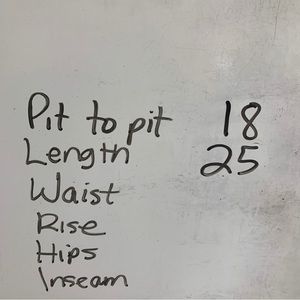 Pit to pit 18
Length 25
Waist
Rise
Hips
Inseam